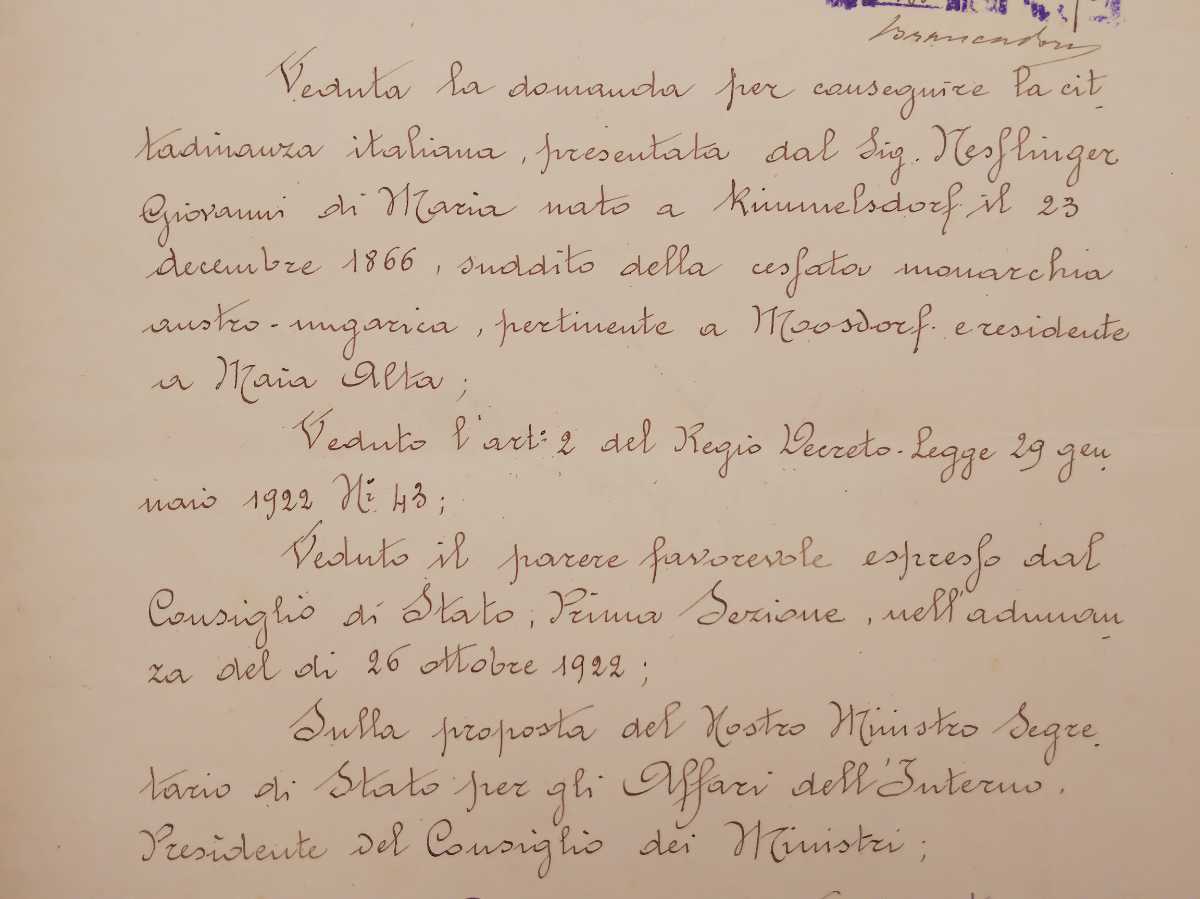 Brancadoru
Veduta la domanda per conseguire la cit-
tadinanza italiana, presentata dal Sig. Nesslinger
Giovanni di Maria nato a Kimmelsdorf il 23
decembre 1866, suddito della cessata monarchia
austro-ungarica, pertinente a Moosdorf e residente
a Maia Alta;
Veduto l'art.º 2 del Regio Decreto-Legge 29 gen-
naio 1922 N.º 43;
Veduto il parere favorevole espresso dal
Consiglio di Stato, Prima Sezione, nell'adunan-
za del di 26 ottobre 1922;
Sulla proposta del Nostro Ministro Segre-
tario di Stato per gli Affari dell'Interno.
Presidente del Consiglio dei Ministri;